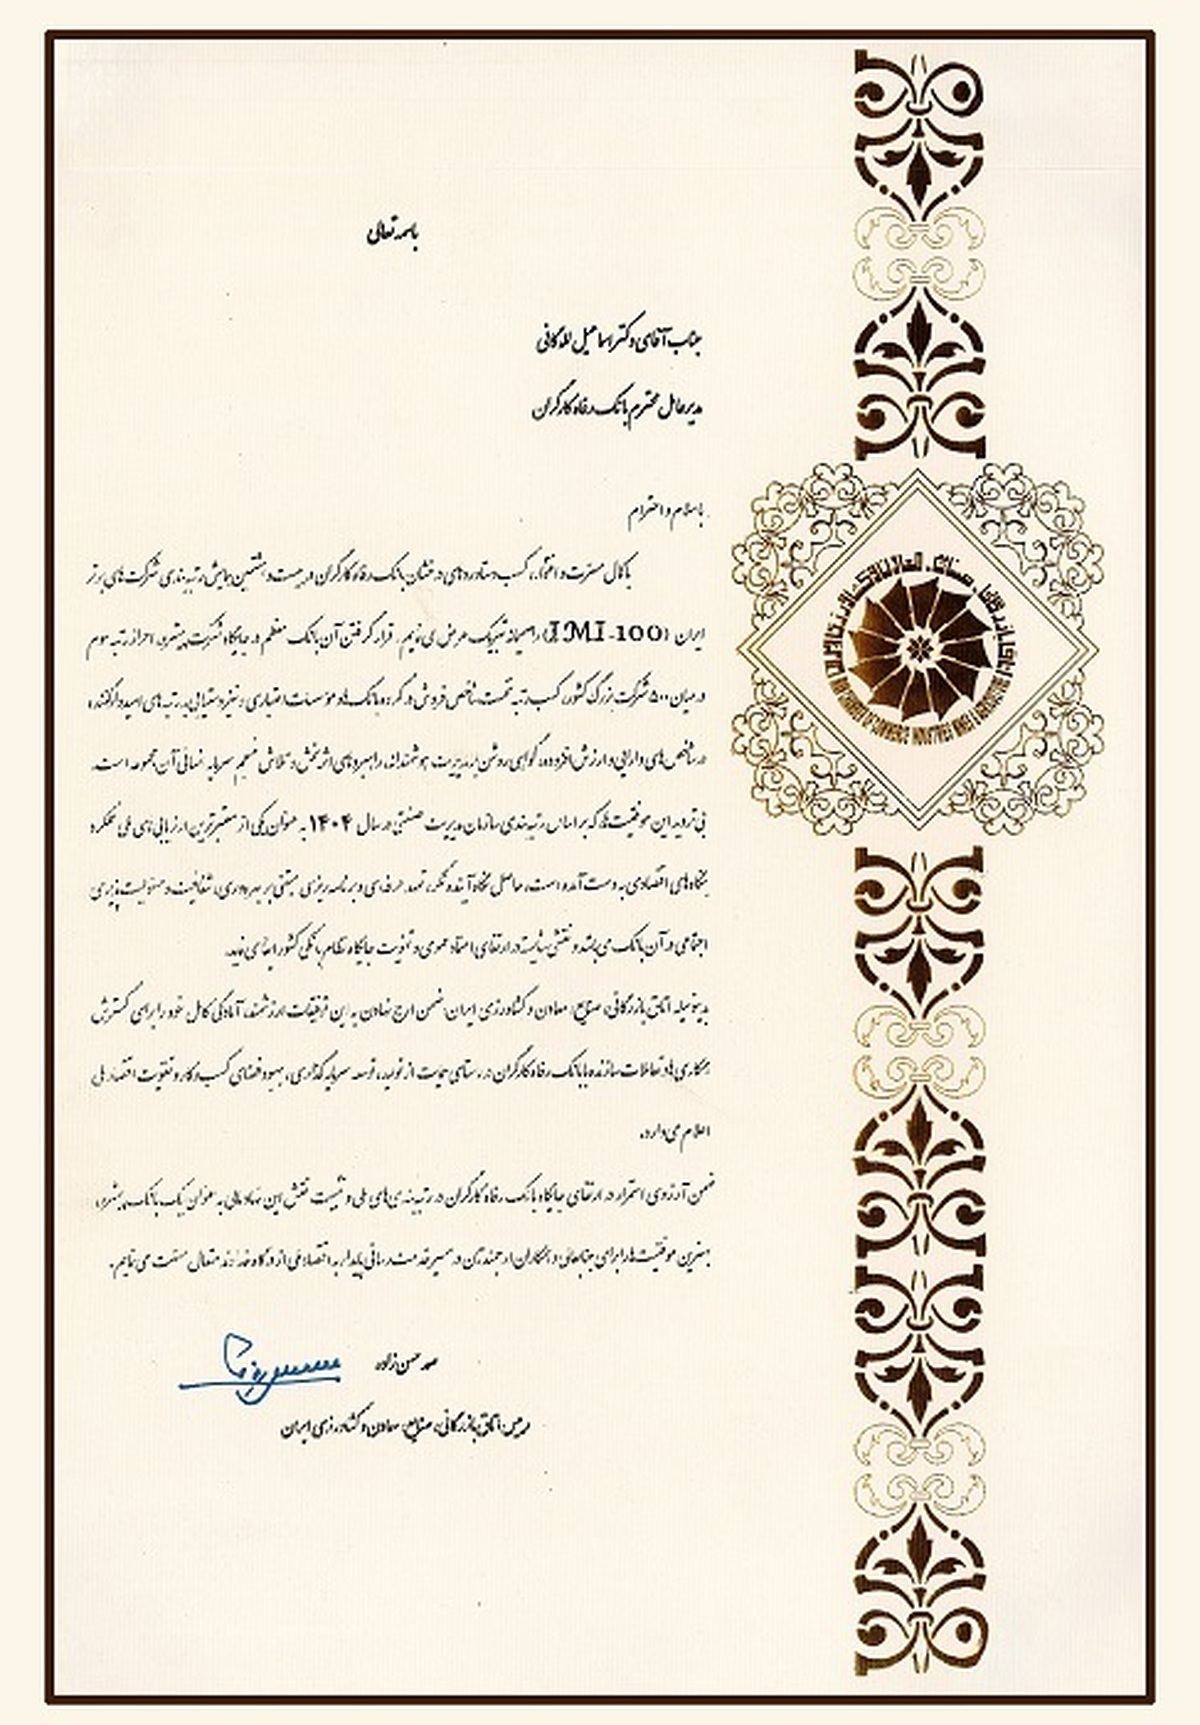 باسمه تعالی
جناب آقای دکتر اسماعیل لله‌گانی
مدیرعامل محترم بانک رفاه کارگران
با سلام و احترام
با کمال مسرت و افتخار، کسب دستاوردهای درخشان بانک رفاه کارگران در بیست و هشتمین همایش رتبه‌بندی شرکت‌های برتر
ایران (IMI-100) را صمیمانه تبریک عرض می‌نمایم. قرار گرفتن آن بانک معظم در جایگاه شرکت پیشرو، احراز رتبه سوم
در میان ۵۰۰ شرکت بزرگ کشور، کسب رتبه نخست شاخص فروش در گروه بانک‌ها و موسسات اعتباری و نیز دستیابی به رتبه‌های امیدوارکننده،
در شاخص‌های دارایی و ارزش افزوده، گواهی روشن بر مدیریت هوشمندانه، راهبردهای اثربخش و تلاش منسجم سرمایه انسانی آن مجموعه است.
بی‌تردید این موفقیت‌ها که بر اساس رتبه‌بندی سازمان مدیریت صنعتی در سال ۱۴۰۴ به عنوان یکی از معتبرترین ارزیابی‌های ملی عملکرد
بنگاه‌های اقتصادی به دست آمده است، حاصل نگاه آینده‌نگر، تعهد حرفه‌ای و برنامه‌ریزی مبتنی بر بهره‌وری، شفافیت و مسئولیت‌پذیری
اجتماعی در آن بانک می‌باشد و نقشی شایسته در ارتقای اعتماد عمومی و تقویت جایگاه نظام بانکی کشور ایفا می‌نماید.
بدینوسیله اتاق بازرگانی، صنایع، معادن و کشاورزی ایران، ضمن ارج نهادن به این توفیقات ارزشمند، آمادگی کامل خود را برای گسترش
همکاری‌ها و تعاملات سازنده با بانک رفاه کارگران در راستای حمایت از تولید، توسعه سرمایه‌گذاری، بهبود فضای کسب و کار و تقویت اقتصاد ملی
اعلام می‌دارد.
ضمن آرزوی استمرار در ارتقای جایگاه بانک رفاه کارگران در رتبه‌بندی‌های ملی و تثبیت نقش این نهاد مالی به عنوان یک بانک پیشرو،
بهترین موفقیت‌ها را برای جنابعالی و همکاران ارجمندتان در مسیر خدمت‌رسانی پایدار به اقتصاد ملی از درگاه خداوند متعال مسئلت می‌نمایم.
صمد حسن‌زاده
رییس اتاق بازرگانی، صنایع، معادن و کشاورزی ایران